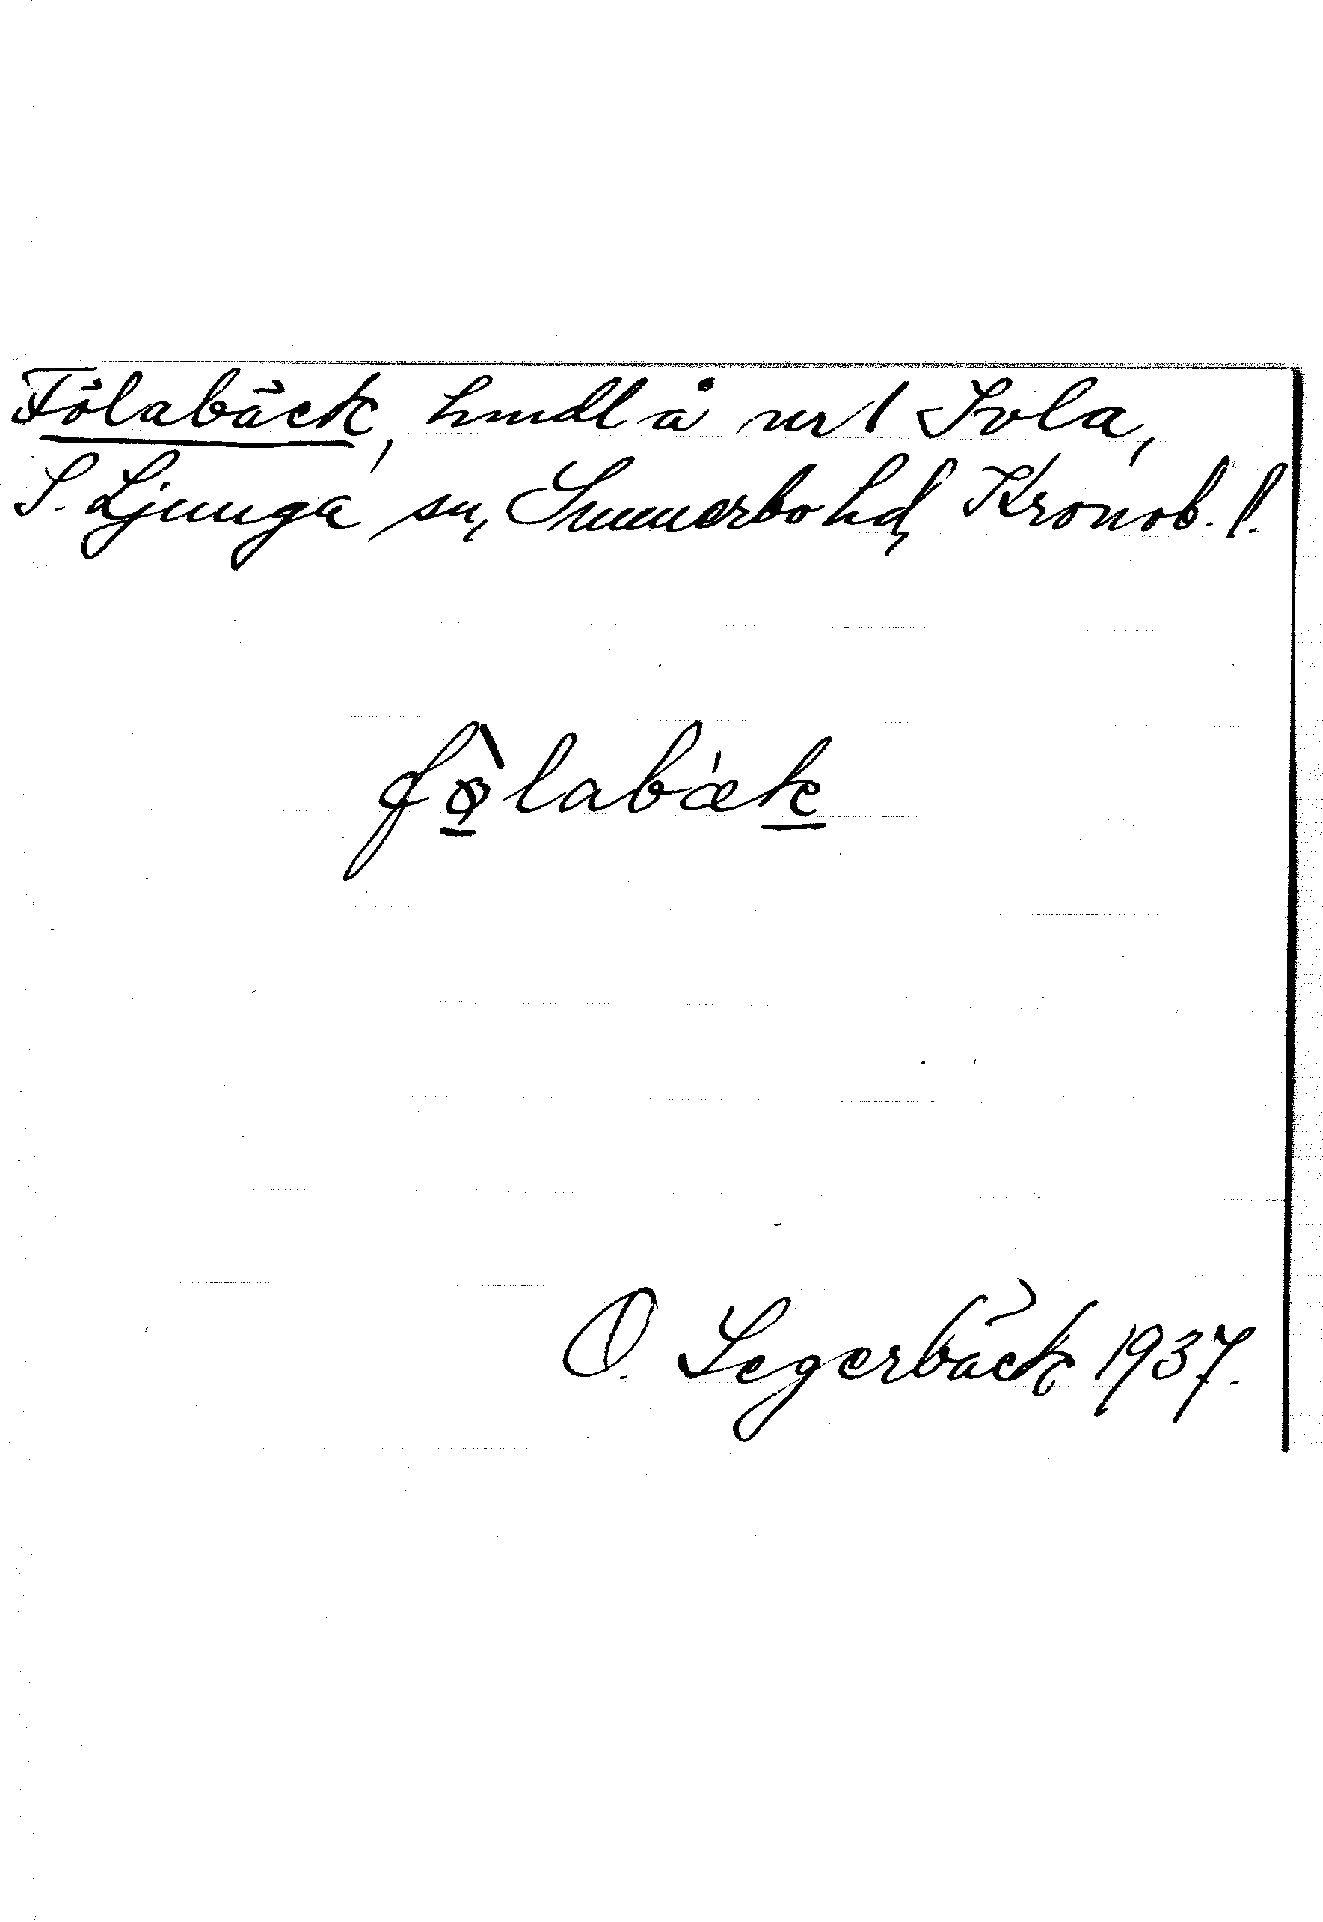 Fölabäck, hmdl å nr 1 Ivla,
S. Ljunga sn, Sunnerbo hd, Kronob. l.
fòlabæk
O. Segerbäck 1937.